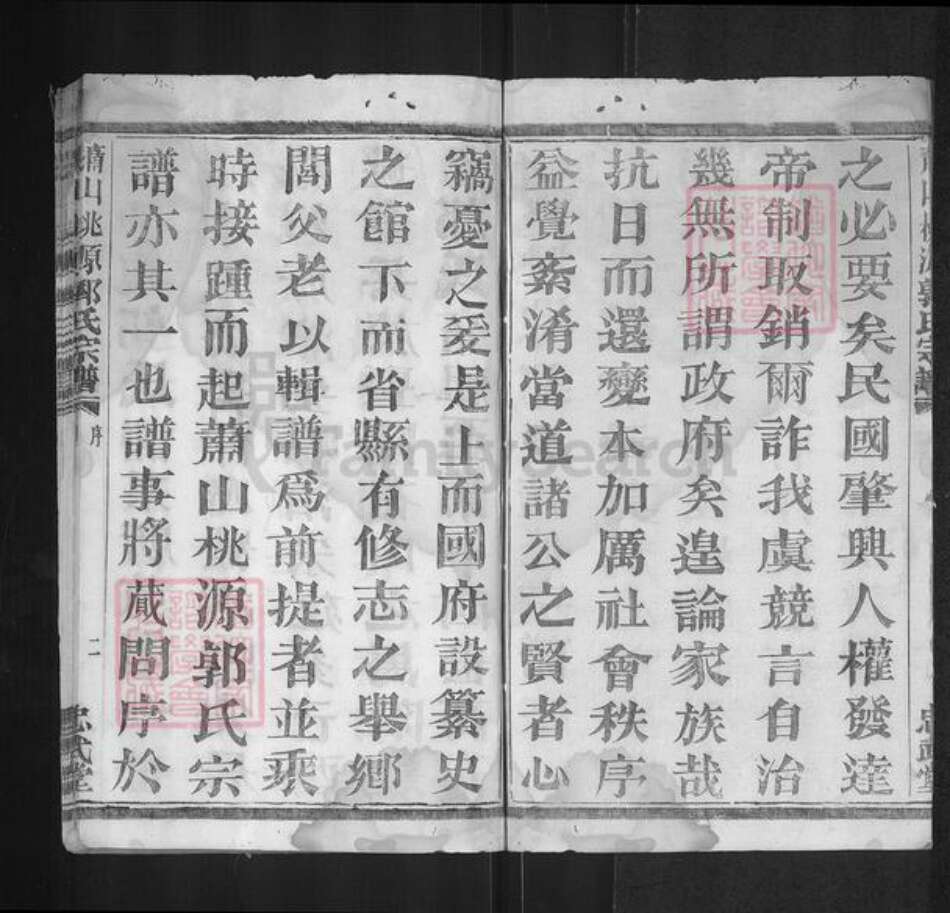 之必要矣民國肇興人權發達
帝制取銷爾詐我虞競言自治
幾無所謂政府矣遑論家族哉
抗日而還變本加厲社會秩序
益覺紊淆當道諸公之賢者心
竊憂之爰是上而國府設纂史
之館下而省縣有修志之舉鄉
閭父老以輯譜爲前提者並乘
時接踵而起蕭山桃源郭氏宗
譜亦其一也譜事將蕆問序於
蕭山桃源郭氏宗譜 序 二 忠武堂
FamilySearch